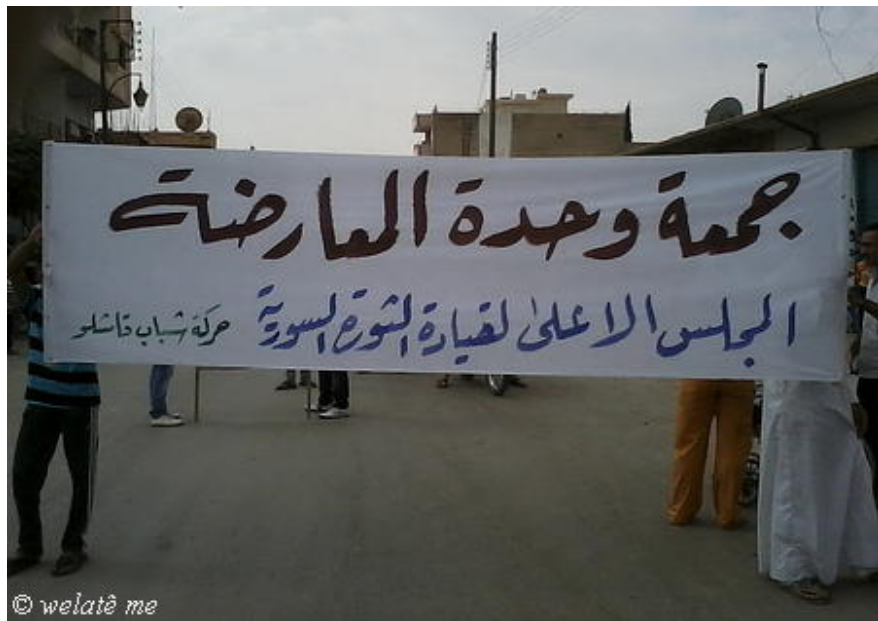 جمعة وحدة المعارضة
المجلس الاعلى لقيادة الثورة السورية حركة شباب قاشلو
© welatê me